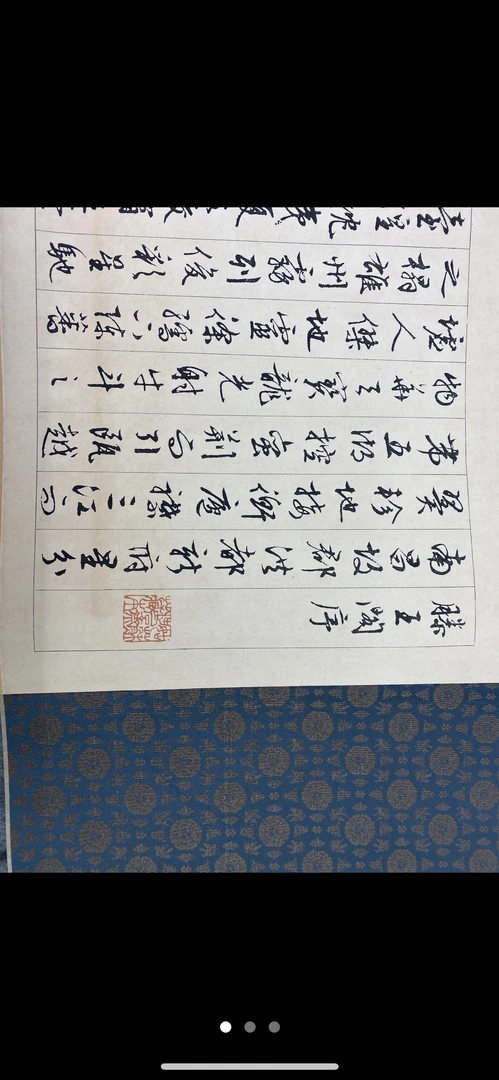 滕王閣序
南昌故郡洪都新府星分
翼軫地接衡廬襟三江而
帶五湖控蠻荊而引甌越
物華天寶龍光射牛斗之
墟人傑地靈徐孺下陳蕃
之榻雄州霧列俊彩星馳
臺隍枕夷夏之交賓